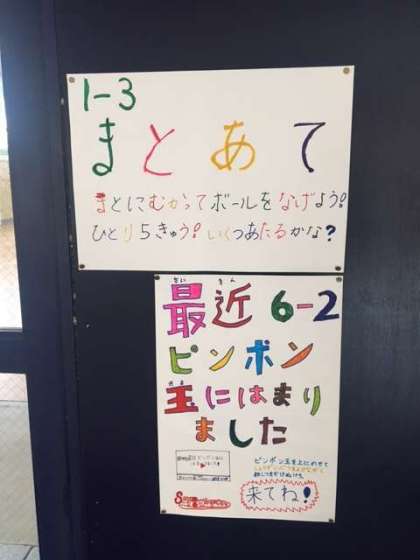 1-3
まとあて
まとにむかってボールをなげよう!
ひとり5きゅう!いくつあたるかな?
さい きん
最近6-2
ピンポン
たま
玉にはまり
ました
ピンポン玉を上にのせて
来てね!